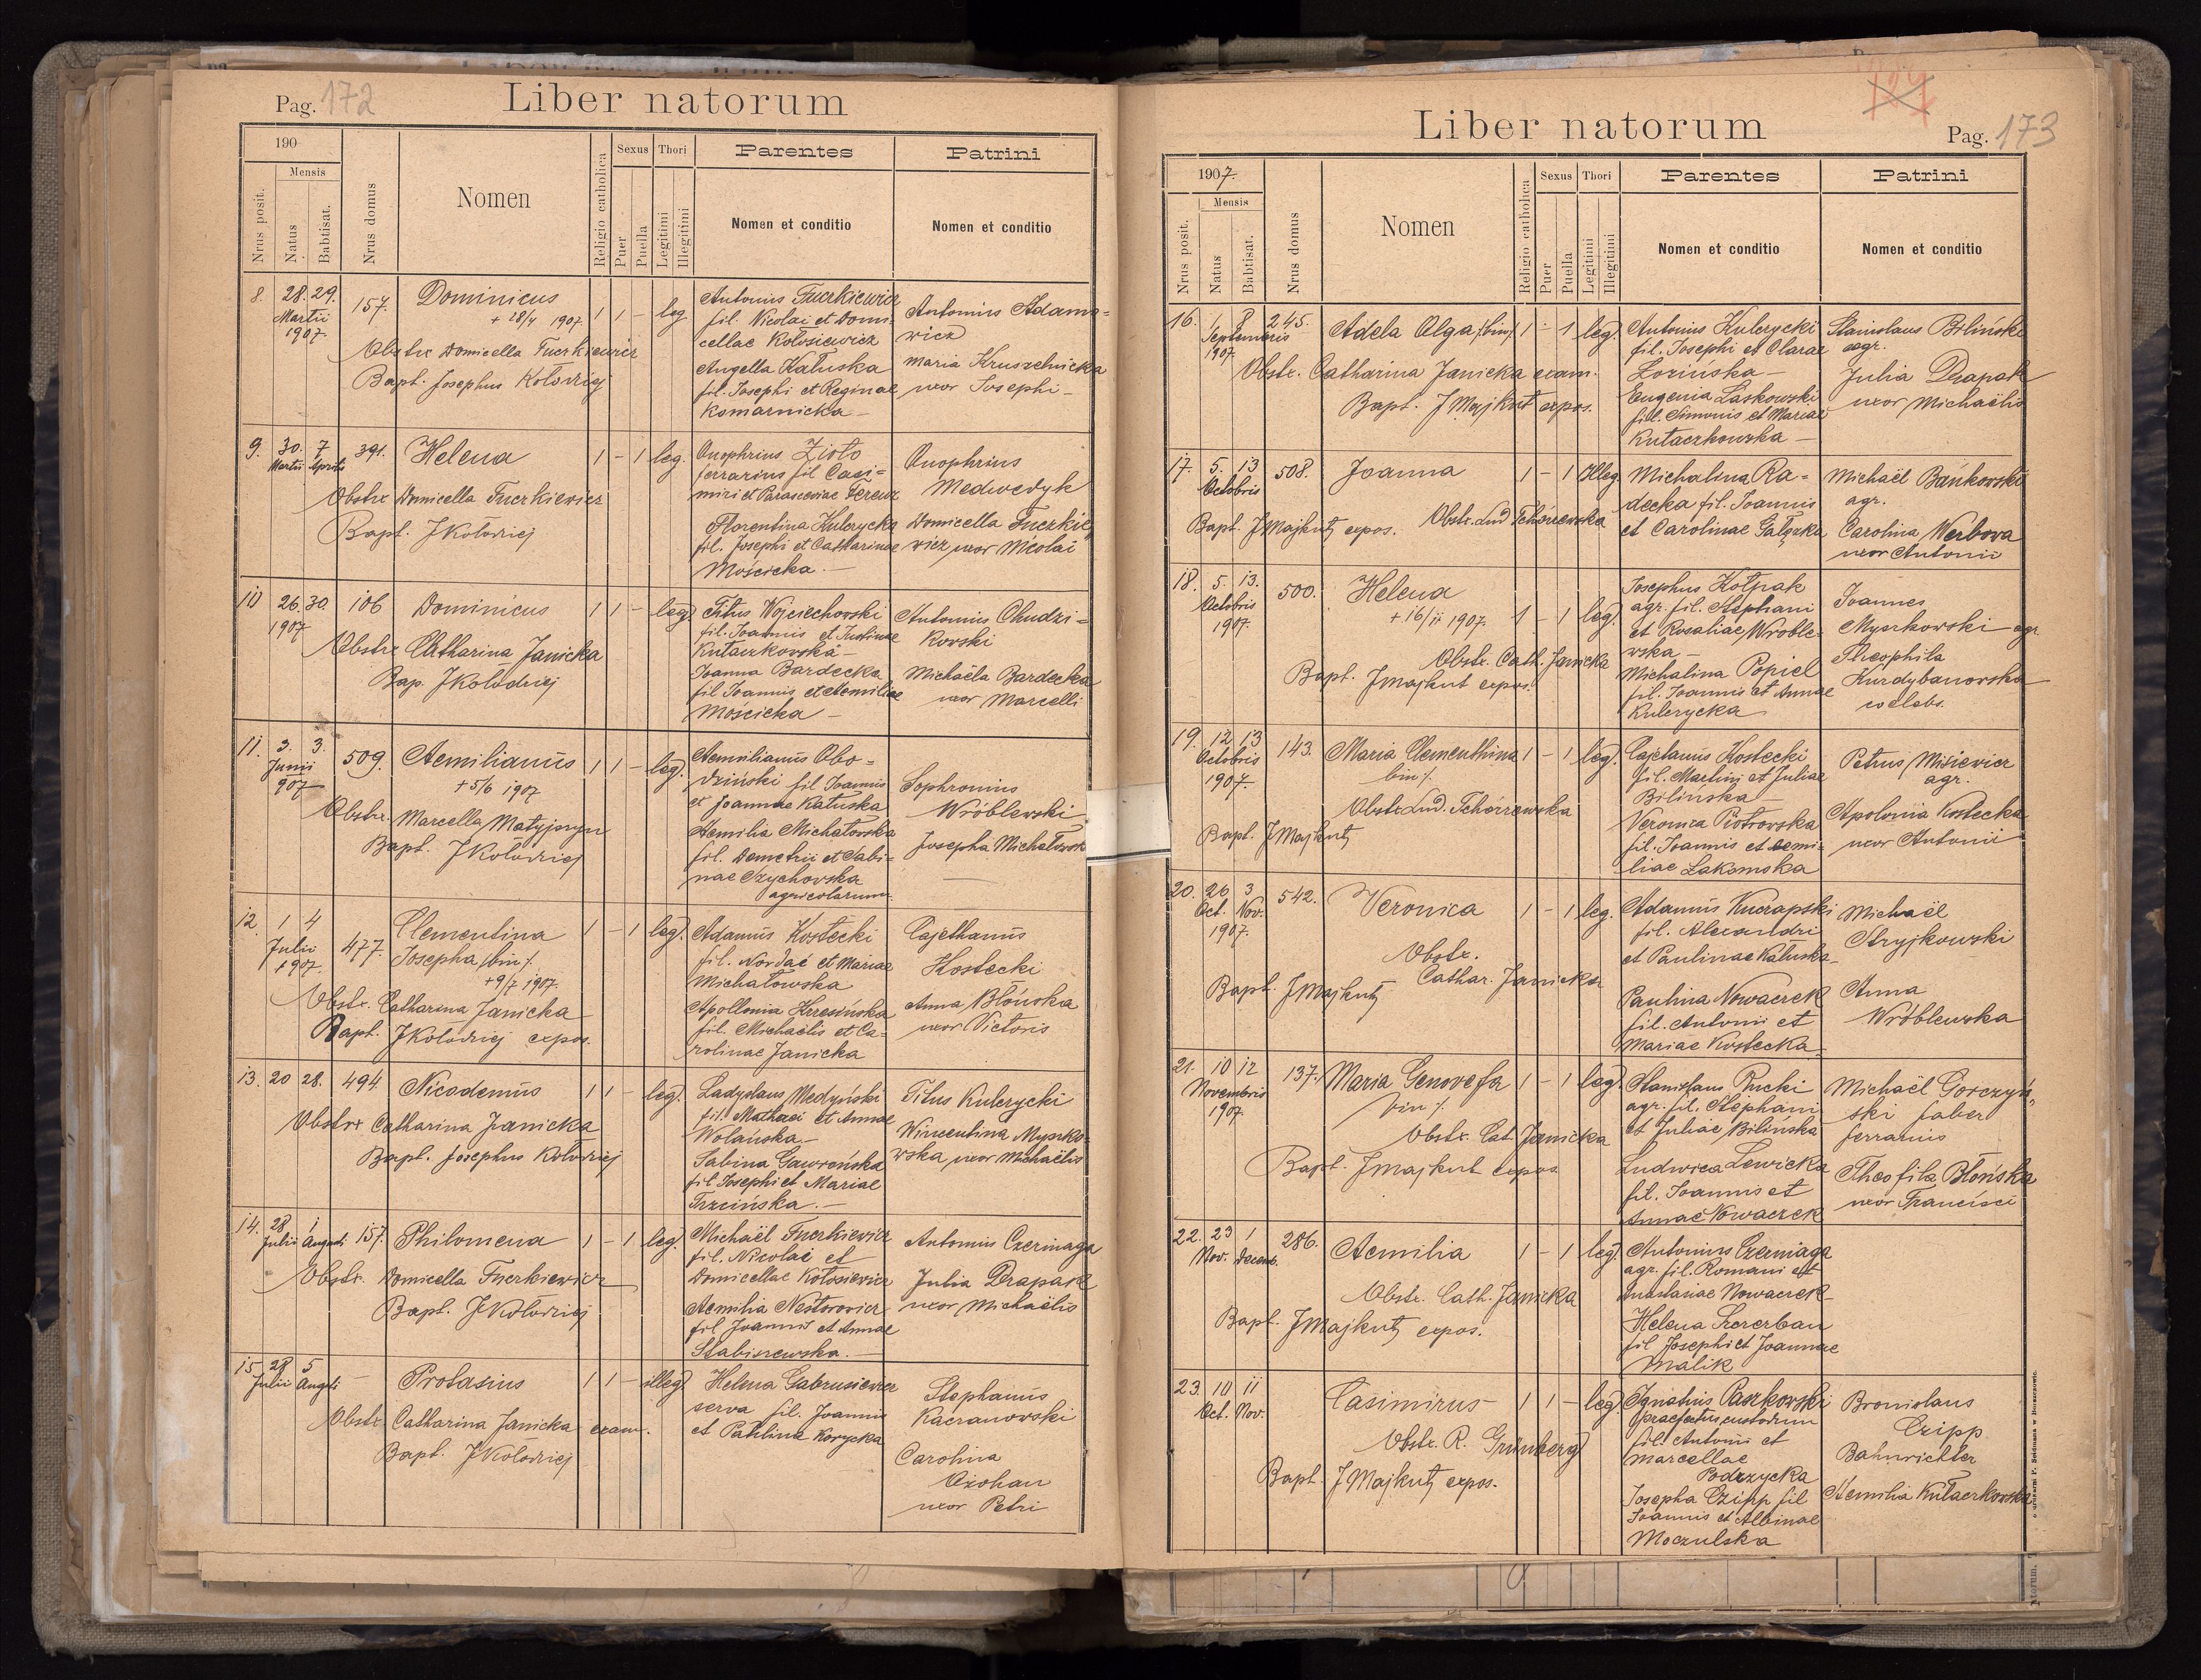 Pag. 172
Liber natorum
190
Mensis
Nrus posit.
Natus
Babtisat.
Nrus domus
Nomen
Religio catholica
Sexus
Puer
Puella
Thori
Legitimi
Illegitimi
Parentes
Nomen et conditio
Patrini
Nomen et conditio
8. 28. 29. 157. Dominicus 1 1 - leg.
Martii
1907
+ 28/4 1907
Obstr. Domicella Tuerkiewicz
Bapt. Josephus Kołodziej
Antonius Tuerkiewicz
fil. Nicolai et Domi-
cellae Kołosiewicz
Angella Kałuska
fil. Josephi et Reginae
Komarnicka -
Antonius Adamo-
wicz
Maria Kruszelnicka
uxor Josephi -
9. 30. 7 391. Helena 1 - 1 leg.
Martii Aprili
Obstr. Domicella Tuerkiewicz
Bapt. JKołodziej
Onophrius Zioło
ferrarius fil Casi=
miri et Parasceviae Ferenz
Florentina Kulczycka
fil. Josephi et Catharinae
Mościcka. -
Onophrius
Medwedyk
Domicella Tuerkie
wicz uxor Nicolai
10 26. 30. 106 Dominicus 1 1 - leg.
1907
Obstr. Catharina Janicka
Bap. JKołodziej
Titus Wojciechowski
fil. Joannis et Justinae
Kułaczkovska -
Joanna Bardecka
fil Joannis et Aemiliae
Mościcka -
Antonius Chudzi=
kovski
Michaëla Bardecka
uxor Marcelli
11. 3. 3. 509. Aemilianus 1 1 - leg.
Junii
907
+ 5/6 1907
Obstr. Marcella Matyjszyn
Bapt. JKołodziej
Aemilianus Obo=
dziński fil Joannis
et Joannae Kałuska
Aemilia Michałovska
fil. Demetrii et Sabi-
nae Czychovska
agricolarum.
Sophronius
Wróblevski
Josepha Michałowsk
12. 1 4 477. Clementina 1 - 1 leg.
Julii
1907.
Josepha /bin/.
+ 9/7 1907.
Obstr. Catharina Janicka
Bapt. JKołodziej expos.
Adamus Kostecki
fil. Nordae et Mariae
Michałowska
Apollonia Krzesińska
fil. Michaëlis et Ca-
rolinae Janicka
Cajethanus
Kostecki
Anna Błońska
uxor Victoris
13. 20 28. 494 Nicodemus 1 1 - leg.
Obstr. Catharina Janicka
Bapt. Josephus Kołodziej
Ladyslaus Medyński
fil. Mathaei et Annae
Wolańska. -
Sabina Gawrońska
fil Josephi et Mariae
Trzcińska. -
Titus Kulczycki
Wincentina Myszko
wska uxor Michaëlis
14. 28 1 157. Philomena 1 - 1 leg.
Julii Augusti
Obstr. Domicella Tuerkiewicz
Bapt. JKołodziej
Michaël Tuerkiewicz
fil. Nicolai et
Domicellae Kołosiewicz
Aemilia Nestorovicz
fil Joannis et Annae
Stabiszewska. -
Antonius Czerniaga
Julia Drapak
uxor Michaëlis
15. 28 5 - Protasius 1 1 - illeg.
Julii Augusti
Obstr. Catharina Janicka exam.
Bapt. JKołodziej
Helena Gabrusiewicz
serva fil. Joannis
et Paulina Korycka
Stephanus
Kaczanovski
Carolina
Ożohan
uxor Petri
Pag. 173
Liber natorum
1907.
Mensis
Nrus posit.
Natus
Babtisat.
Nrus domus
Nomen
Religio catholica
Sexus
Puer
Puella
Thori
Legitimi
Illegitimi
Parentes
Nomen et conditio
Patrini
Nomen et conditio
16. 1 8 245. Adela Olga /:bin/ 1 - 1 leg.
Septembris
1907
Obstr. Catharina Janicka exam.
Bapt. JMajkut expos.
Antonius Kulczycki
fil. Josephi et Clarae
Łozińska -
Eugenia Laskowski
fil. Simonis et Mariae
Kułaczkowska -
Stanislaus Biliński
agr.
Julia Drapak
uxor Michaëlis
17. 5. 13 508. Joanna 1 - 1 Illeg.
Octobris
Obstr. Lud Tchórzewska
Bapt. JMajkut expos.
Michalina Ra=
decka fil. Joannis
et Carolinae Gałązka
Michaël Bańkovski
agr.
Carolina Werbova
uxor Antonii
18. 5. 13. 500. Helena 1 - 1 leg.
Octobris
1907.
+ 16/11 1907.
Obstr. Cath. Janicka
Bapt. JMajkut expos.
Josephus Kołpak
agr. fil. Stephani
et Rosaliae Wroble-
wska -
Michalina Popiel
fil. Joannis et Annae
Kulczycka
Joannes
Myszkowski agr.
Theophila
Kurdybanovska
coelebs.
19. 12 13 143. Maria Clementhina 1 - 1 leg.
Octobris
1907.
bin/.
Obstr. Lud. Tchórzewska
Bapt. JMajkut
Cajetanus Kostecki
fil. Martini et Juliae
Bilińska
Veronica Piotrovska
fil. Joannis et Aemi-
liae Łakomska
Petrus Misievicz
agr.
Apolonia Kostecka
uxor Antonii
20. 26 3 542. Veronica 1 - 1 leg.
Oct. Nov.
1907.
Obstr.
Cathar. Janicka
Bapt. JMajkut
Adamus Kuczapski
fil. Alexandri
et Paulinae Kałuska -
Paulina Nowaczek
fil. Antonii et
Mariae Kostecka
Michaël
Stryjkowski
Anna
Wróblewska
21. 10 12 137. Maria Genovefa 1 - 1 leg.
Novembris
1907.
bin/.
Obstr. Cat. Janicka
Bapt. JMajkut expos
Stanislaus Rucki
agr. fil. Stephani
et Juliae Bilińska
Ludwica Lewicka
fil. Joannis et
Annae Nowaczek
Michaël Gorczyń
ski faber
ferrarius
Theofila Błońska
uxor Francisci
22. 23 1 286. Aemilia 1 - 1 leg.
Nov. Decemb.
Obstr. Cath. Janicka
Bapt. JMajkut expos.
Antonius Czerniaga
agr. fil. Romani et
Anastasiae Nowaczek -
Helena Szczerban
fil Josephi et Joannae
Malik
23. 10 11 Casimirus 1 1 - leg.
Oct. Nov.
Obstr. R. Grünberg
Bapt. JMajkut expos.
Ignatius Paszkowski
praefectus custodum
fil. Antonii et
Marcellae
Podrzycka
Josepha Czipp fil
Joannis et Albinae
Moczulska
Bronislaus
Czipp
Bahnrichter
Aemilia Kułaczkowska